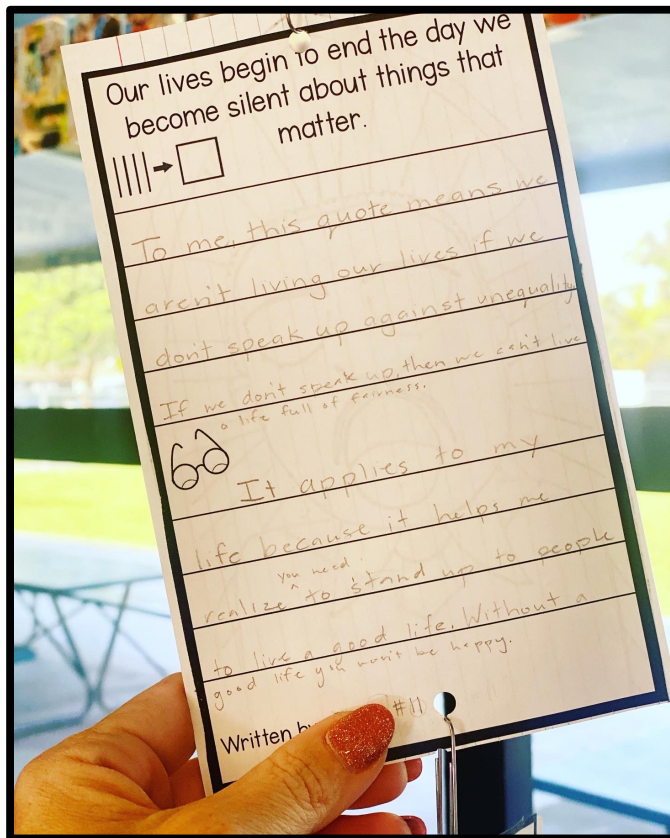 Our lives begin to end the day we
become silent about things that
matter.
To me, this quote means we
aren't living our lives if we
don't speak up against unequality
If we don't speak up, then we can't live
a life full of fairness.
It applies to my
life because it helps me
you need
realize to stand up to people
to live a good life. Without a
good life you won't be happy.
Written by #11